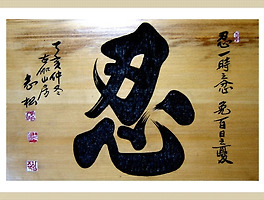 忍一時之忿 免百日之憂
忍
丁亥仲冬
山房
松